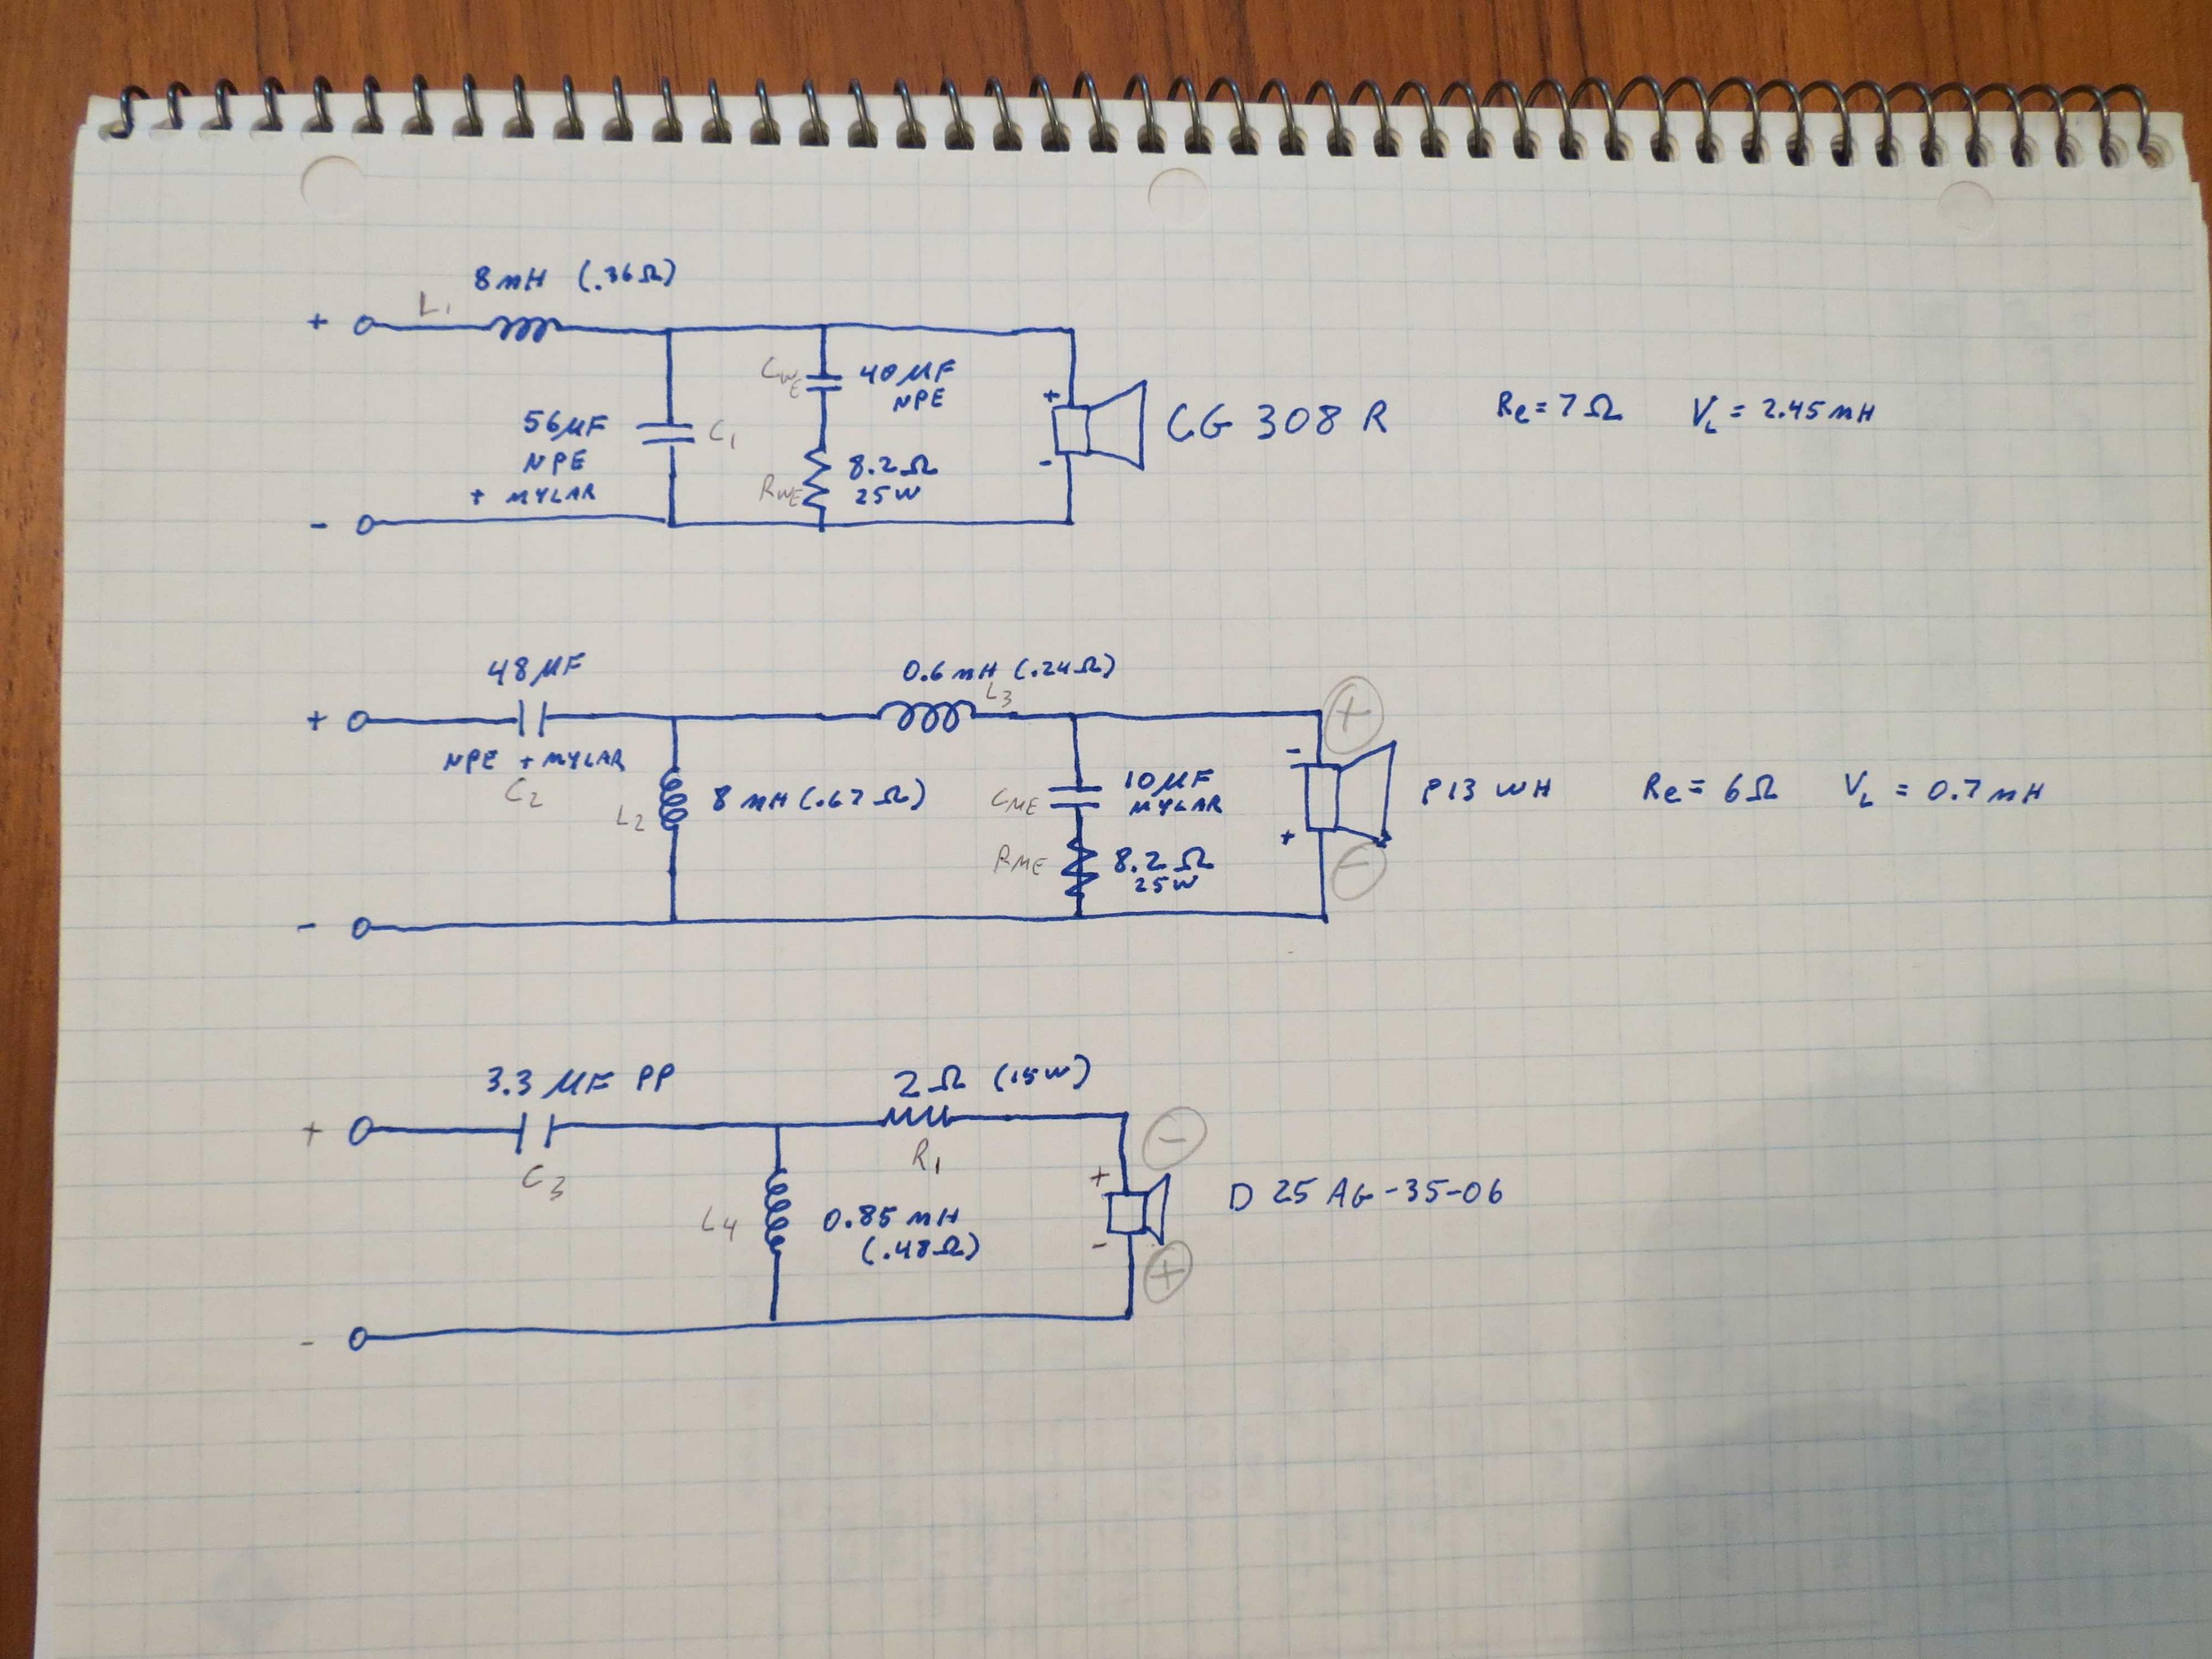 8mH (.36Ω)
L1
+
CWE
40 µF
NPE
+
56µF
NPE
+ MYLAR
C1
RWE
8.2Ω
25W
-
CG 308 R
Re = 7Ω
VL = 2.45 mH
-
48 µF
0.6 mH (.24Ω)
L3
+
+
NPE + MYLAR
C2
L2
8 mH (.67Ω)
CME
10 µF
MYLAR
-
P13 WH
Re = 6Ω
VL = 0.7 mH
RME
8.2Ω
25W
+
-
-
3.3 µF PP
2Ω (15W)
+
C3
R1
-
+
L4
0.85 mH
(.48Ω)
-
+
D 25 AG-35-06
-